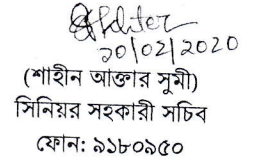 Akhter
20/02/2020
(শাহীন আক্তার সুমী)
সিনিয়র সহকারী সচিব
ফোন: ৯১৮০৯৫০